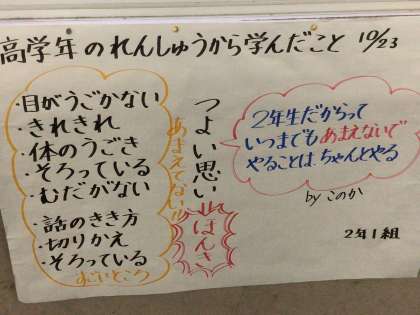 高学年のれんしゅうから学んだこと 10/23
・目がうごかない
・きれきれ
・体のうごき
・そろっている
・むだがない
・話のきき方
・切りかえ
・そろっている
むずいところ
つよい思い
あまえてない!!
ほんき
2年生だからって
いつまでもあまえないで
やることは ちゃんとやる
by このか
2年1組